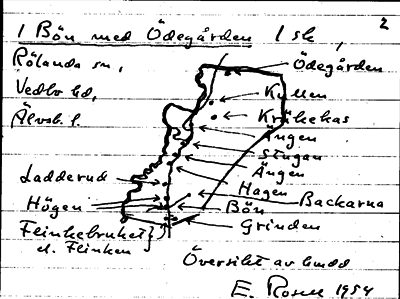 2
1 Bön med Ödegården 1 sk,
Rölanda sn,
Vedbo hd,
Älvsb. l.
Ödegården
Kullen
Kråkekas
Ängen
Stugan
Ängen
Hagen
Backarna
Bön
Grinden
Ladderud
Högen
Flinkebruket
el. Flinken
Översikt av
E. Rosell 1954